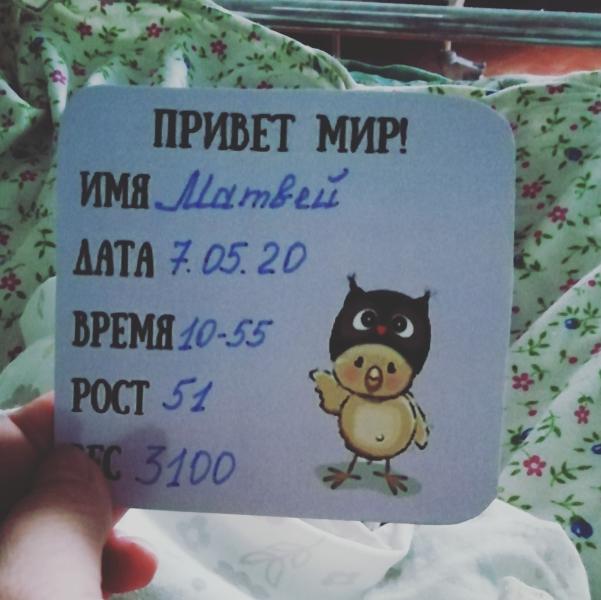 ПРИВЕТ МИР!
ИМЯ Матвей
ДАТА 7.05.20
ВРЕМЯ 10-55
РОСТ 51
ВЕС 3100